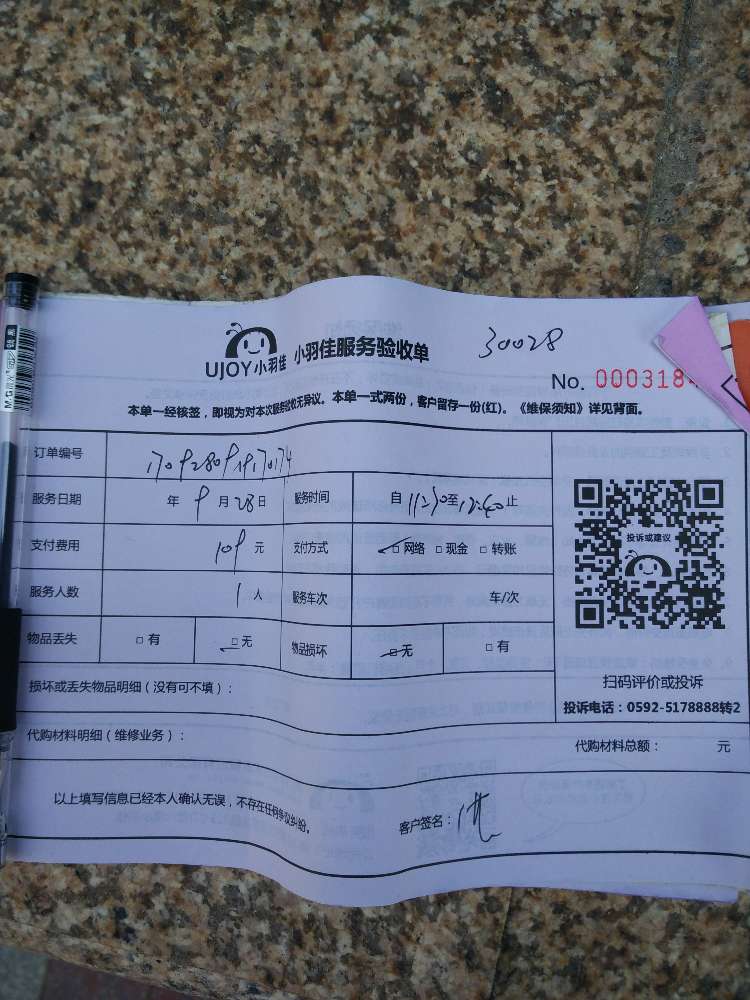 30028
UJOY小羽佳 小羽佳服务验收单
No. 000318
本单一经核签，即视为对本次服务验收无异议。本单一式两份，客户留存一份(红)。《维保须知》详见背面。
订单编号
服务日期 年 9 月 28 日 服务时间 自 11:30 至 12:40 止
支付费用 109 元 支付方式 □ 网络 □ 现金 □ 转账
服务人数 1 人 服务车次 车/次
物品丢失 □ 有 □ 无 物品损坏 □ 无 □ 有
投诉或建议
扫码评价或投诉
投诉电话：0592-5178888转2
损坏或丢失物品明细（没有可不填）：
代购材料明细（维修业务）： 代购材料总额： 元
以上填写信息已经本人确认无误，不存在任何争议纠纷。 客户签名：
M&G